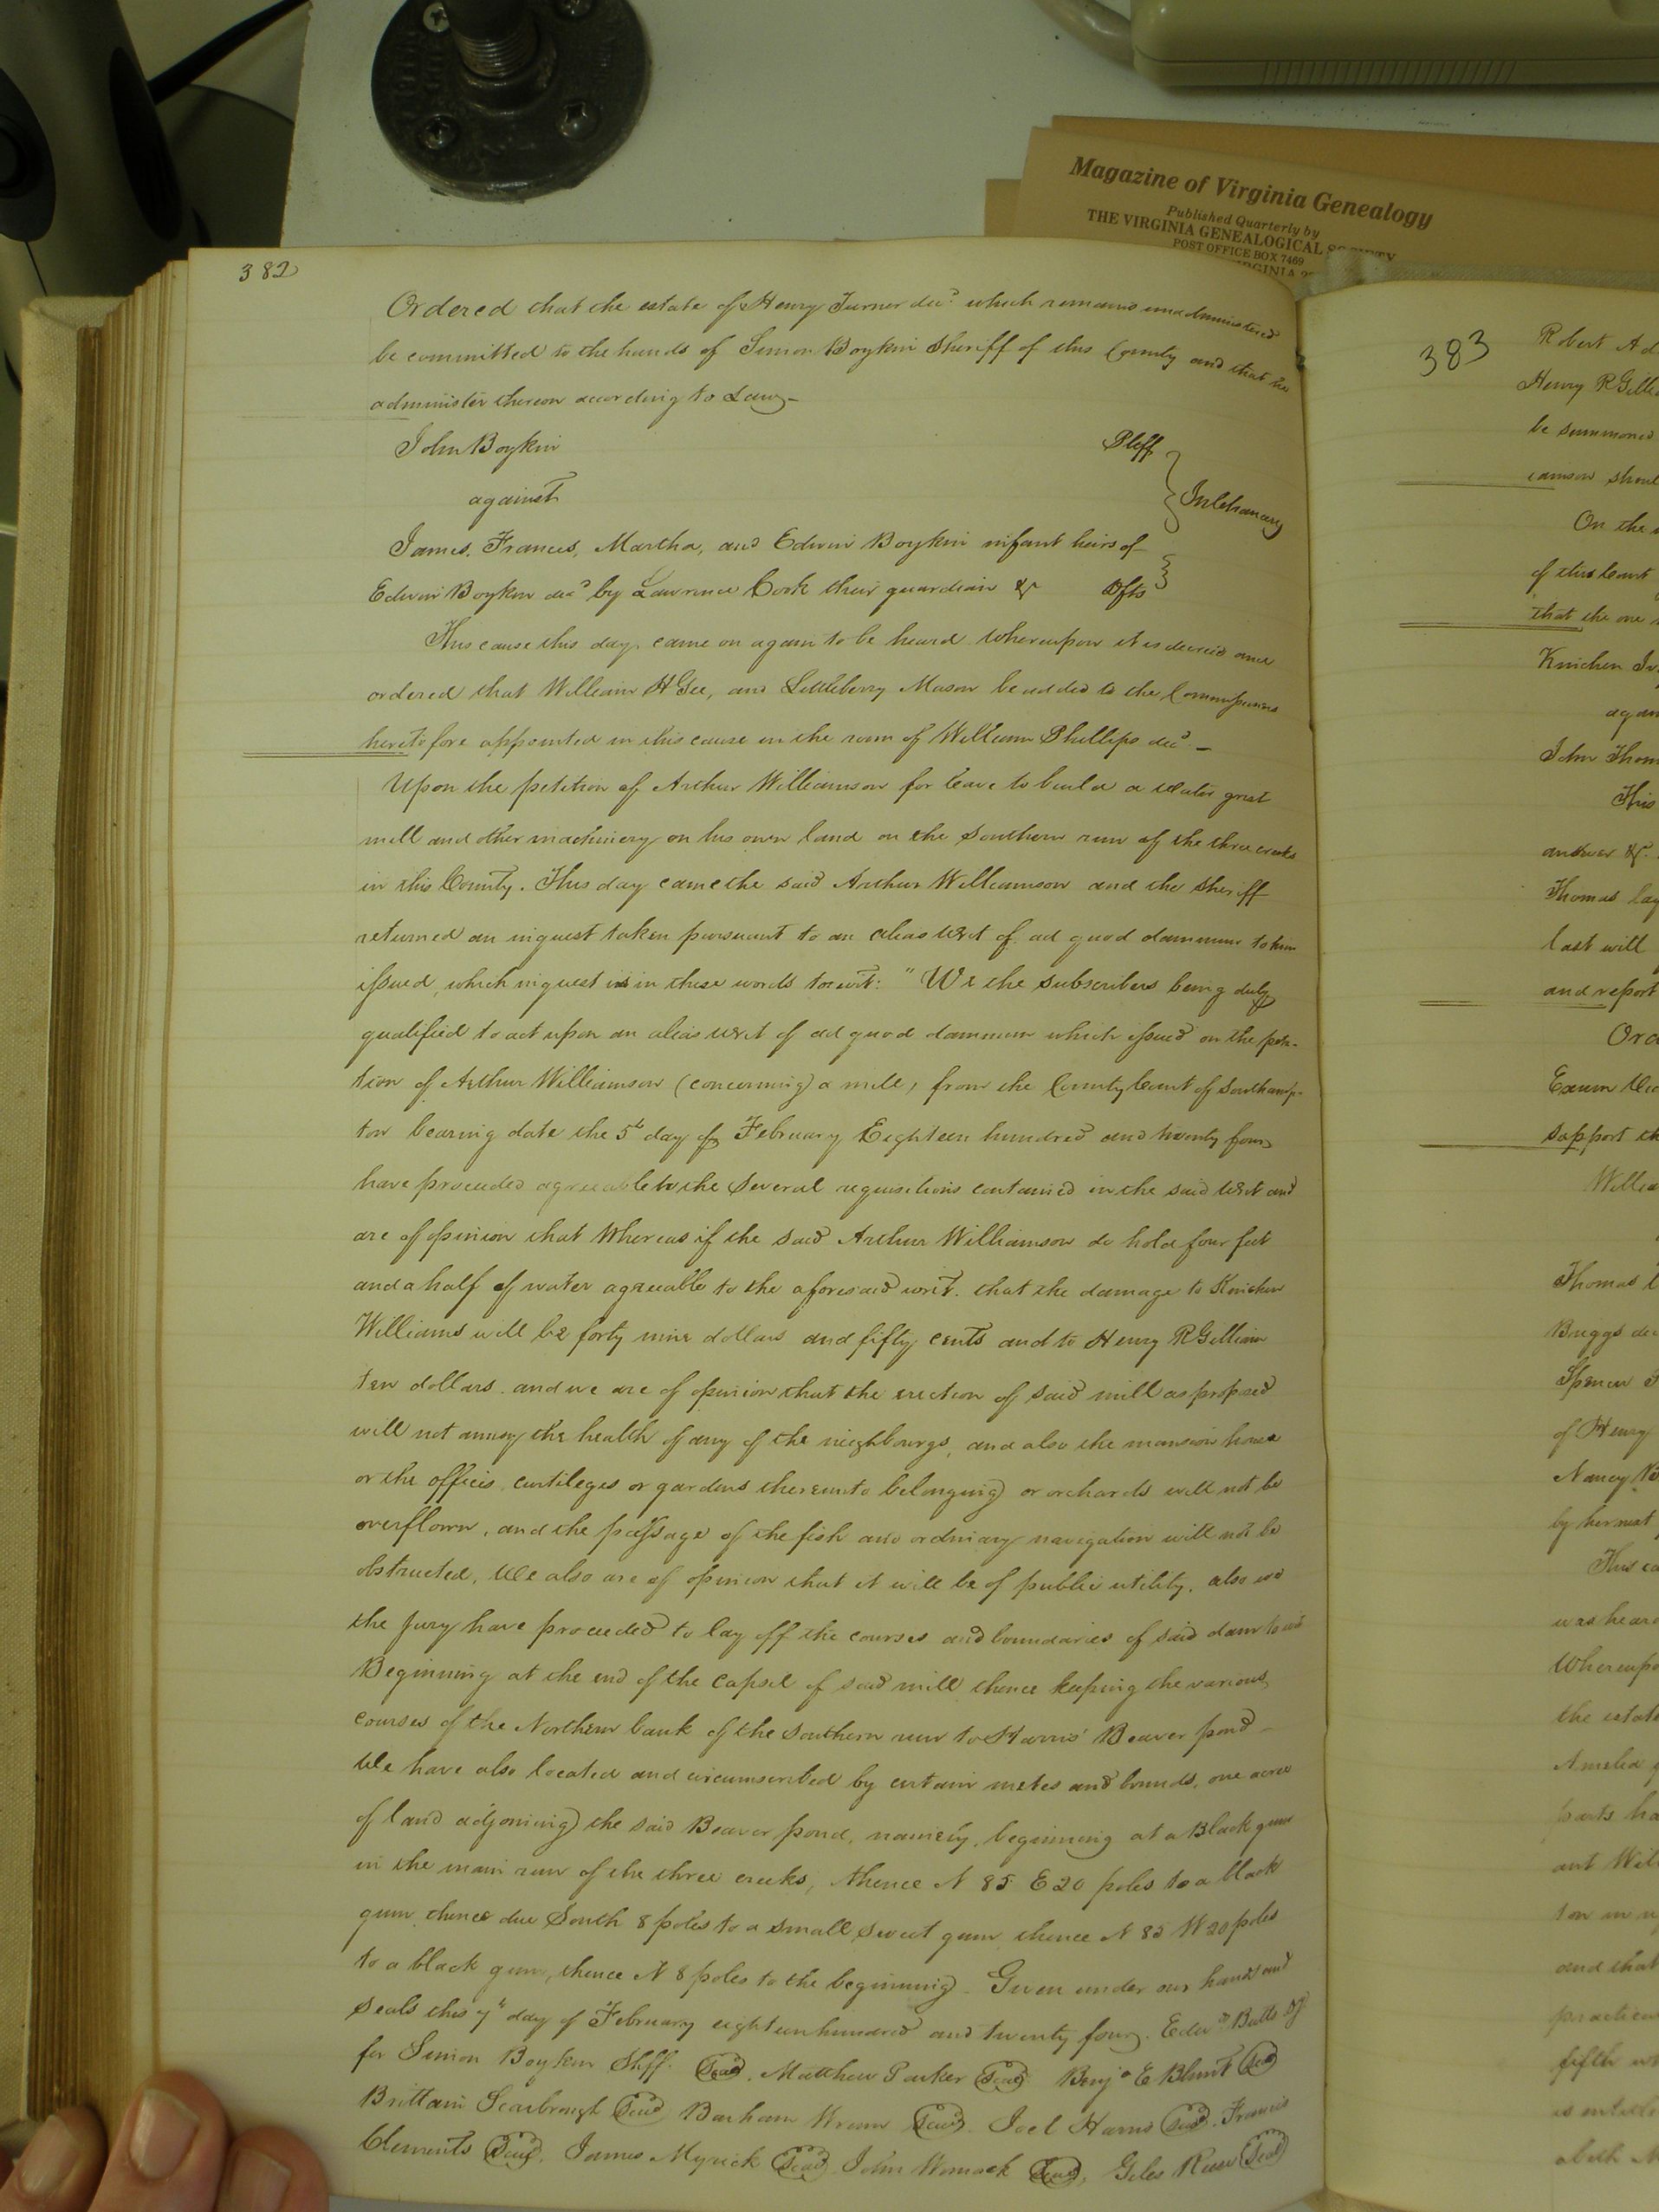 Magazine of Virginia Genealogy
Published Quarterly by
THE VIRGINIA GENEALOGICAL SOCIETY
POST OFFICE BOX 7469
382
Ordered that the estate of Henry Turner decd. which remains unadministered
be committed to the hands of Simon Boykin Sheriff of this County and that he
administer thereon according to Law_
John Boykin Pltff
against
In Chancery
James, Frances, Martha, and Edwin Boykin infant heirs of
Edwin Boykin decd by Lawrence Cook their guardian &c Dfts
This cause this day, came on again to be heard Whereupon it is decreed and
ordered that William H Gee, and Littleberry Mason be added to the Commissioners
heretofore appointed in this cause in the room of William Phillips decd. _
Upon the petition of Arthur Williamson for leave to build a water grist
mill and other machinery on his own land on the Southern run of the three creeks
in this County. This day came the said Arthur Williamson and the Sheriff
returned an inquest taken pursuant to an alias writ of ad quod damnum to him
issued, which inquest is in these words to wit: "We the subscribers being duly
qualified to act upon an alias writ of ad quod damnum which issued on the peti-
tion of Arthur Williamson (concerning) a mill, from the County Court of Southamp-
ton bearing date the 5th day of February Eighteen hundred and twenty four
have proceeded agreeable to the several requisitions contained in the said writ and
are of opinion that Whereas if the said Arthur Williamson do hold four feet
and a half of water agreeable to the aforesaid writ. that the damage to Kinchen
Williams will be forty nine dollars and fifty cents and to Henry R Gilliam
ten dollars. and we are of opinion that the erection of said mill as proposed
will not annoy the health of any of the neighbourgs, and also the mansion house
or the offices, curtileges or gardens thereunto belonging or orchards will not be
overflown, and the passage of the fish and ordinary navigation will not be
obstructed, We also are of opinion that it will be of public utility, also we
the Jury have proceeded to lay off the courses and boundaries of said dam to wit
Beginning at the end of the capsel of said mill thence keeping the various
courses of the Northern bank of the Southern run to Harris' Beaver pond_
We have also located and circumscribed by certain metes and bounds, one acre
of land adjoining the said Beaver pond, namely, beginning at a Black gum
in the main run of the three creeks, thence N 85 E 20 poles to a black
gum, thence due South 8 poles to a small sweet gum, thence N 85 W 20 poles
to a black gum, thence N 8 poles to the beginning_ Given under our hands and
seals this 7th day of February eighteen hundred and twenty four. Edwd. Butts DS
for Simon Boykin Shff. (Seal), Matthew Parker (Seal) Benja E Blunt (Seal)
Brittain Scarbrough (Seal) Barham Wrenn (Seal). Joel Harris (Seal). Francis
Clements (Seal), James Myrick (Seal) John Womack (Seal), Giles Reese (Seal)
383
Robert
Henry R
be summoned
On the
of this Court
that the one
Kinchen
John
This
answer &c.
Thomas
last will
and report
support
Thomas
Briggs
Spencer
of Henry
Nancy
by her next
This
was heard
the estate
Amelia
parts
and that
fifth